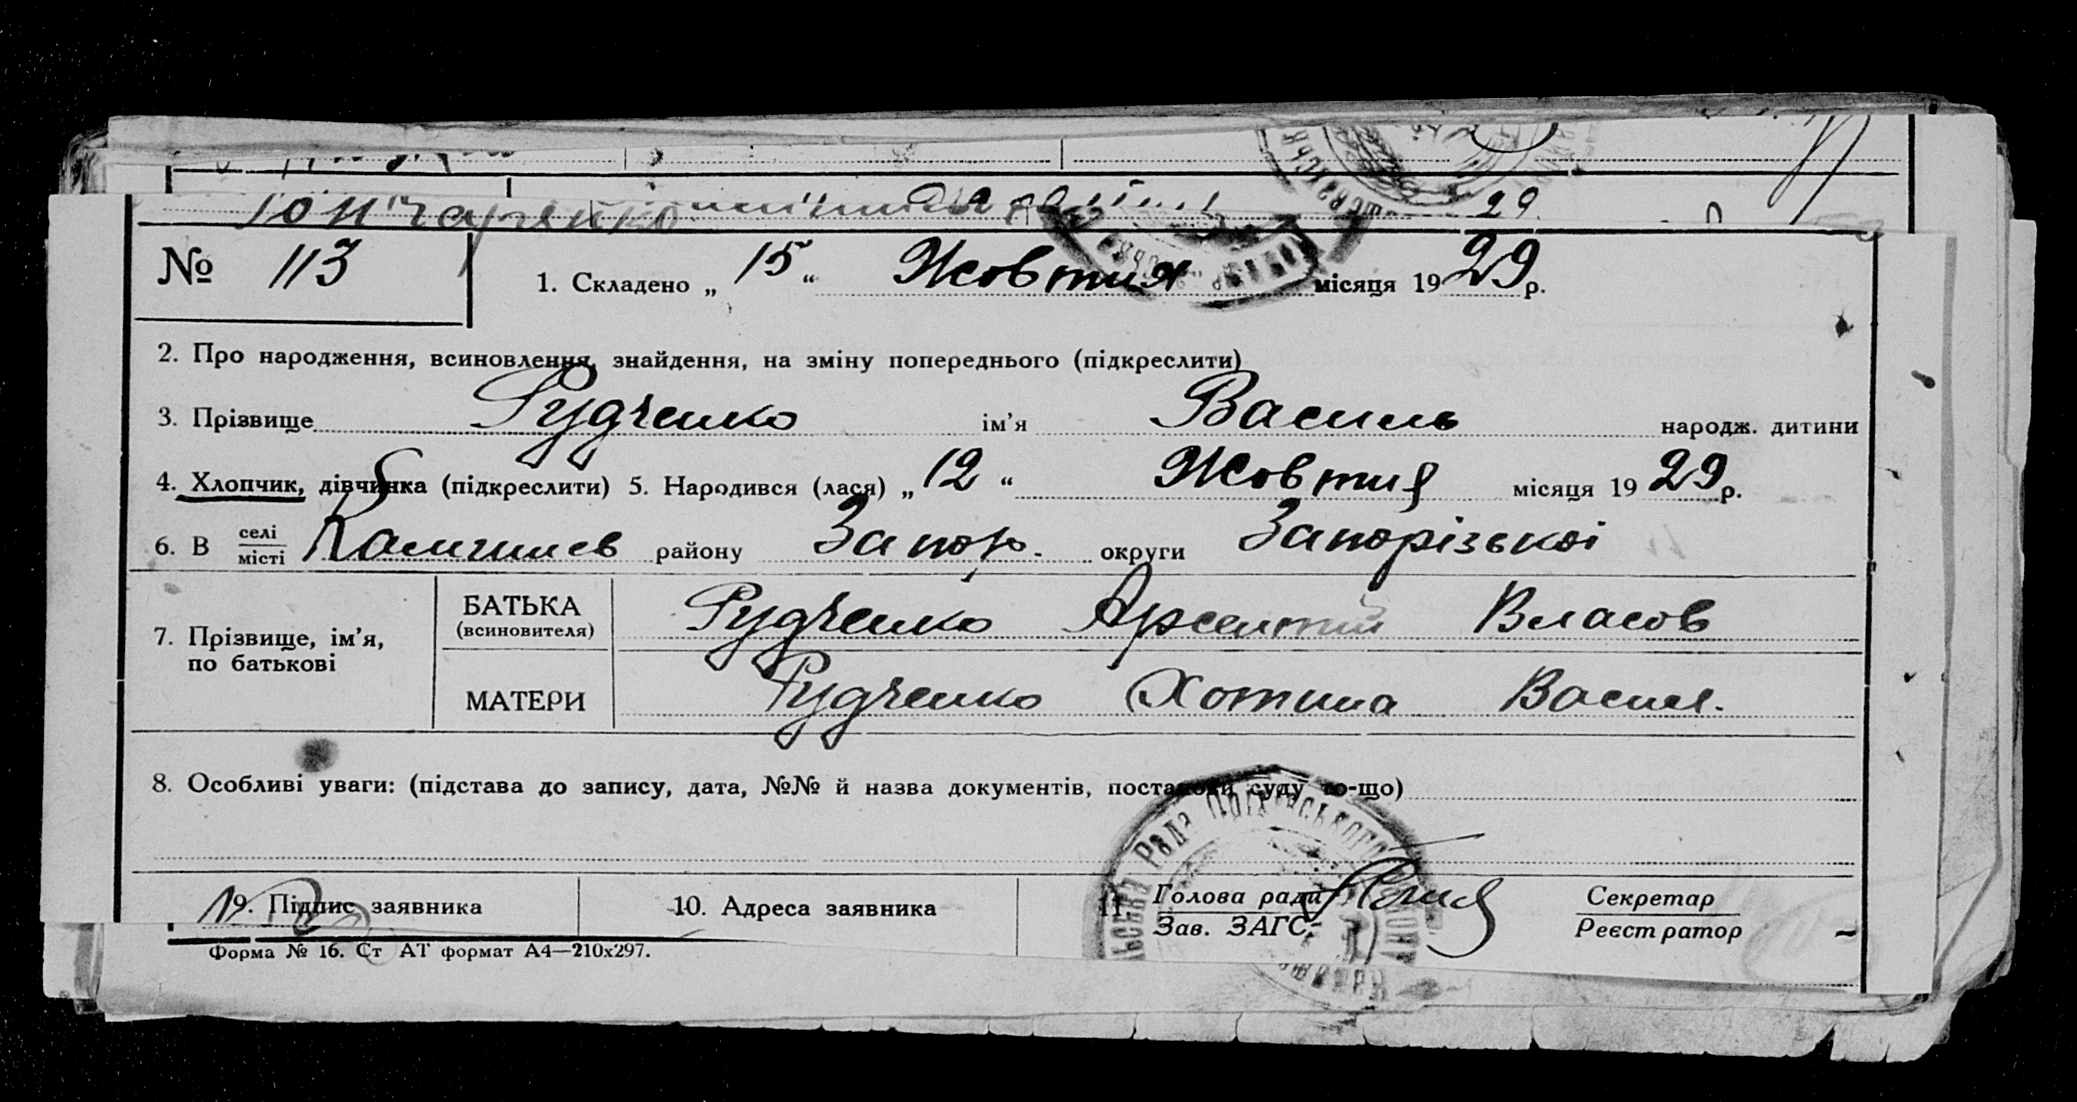 29
№ 113
1. Складено „ 15 “ Жовтня місяця 1929 р.
2. Про народження, всиновлення, знайдення, на зміну попереднього (підкреслити)
3. Прізвище Рудченко ім’я Василь народж. дитини
4. Хлопчик, дівчинка (підкреслити) 5. Народився (лася) „ 12 “ Жовтня місяця 1929 р.
6. В селі/місті району Запор. округи Запорізької
7. Прізвище, ім’я, по батькові
БАТЬКА (всиновителя) Рудченко Арсентій Власов
МАТЕРИ Рудченко Хотина Васил.
8. Особливі уваги: (підстава до запису, дата, №№ й назва документів, постанови суду то-що)
9. Підпис заявника 10. Адреса заявника 11. Голова ради Секретар
Зав. ЗАГС Реєстратор
Форма № 16. Ст АТ формат А4—210х297.